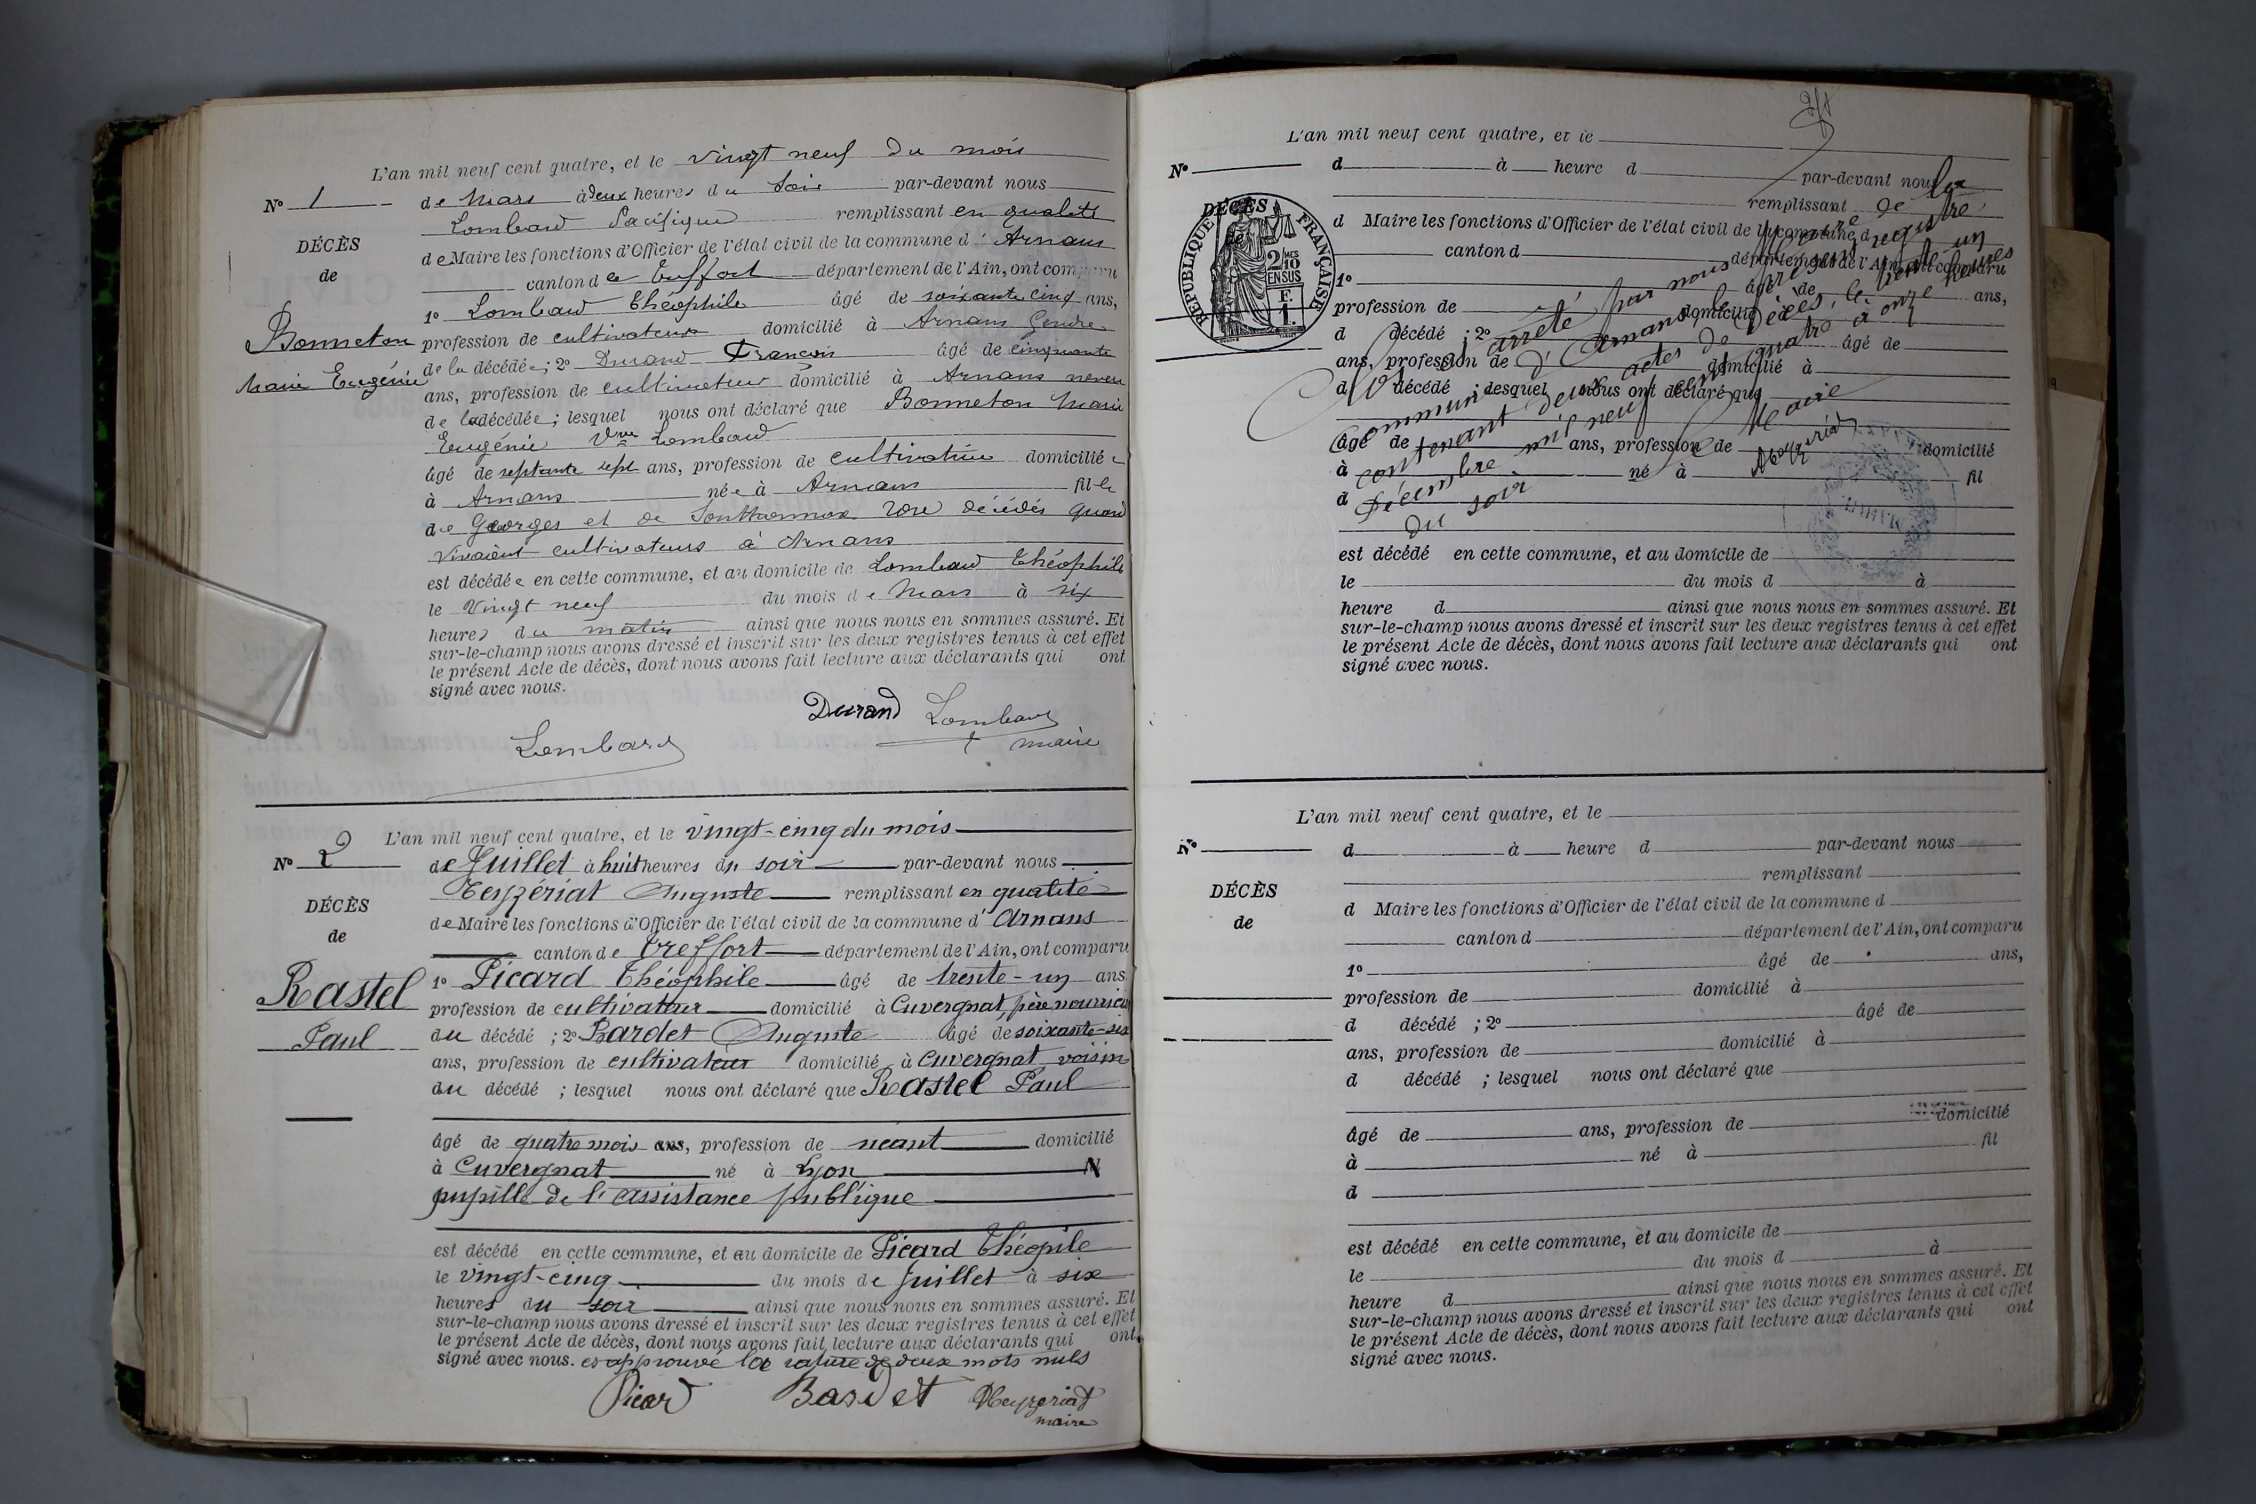 L'an mil neuf cent quatre, et le vingt neuf du mois
No 1
de Mars à deux heures du soir par-devant nous
Lombard Pacifique remplissant en qualité
DÉCÈS
de Maire les fonctions d'Officier de l'état civil de la commune d'Arnans
de
canton de Treffort département de l'Ain, ont comparu
1o Lombard Théophile âgé de soixante cinq ans,
Bonneton
profession de cultivateur domicilié à Arnans Gendre
Marie Eugénie
de la décédée; 2o Durand François âgé de cinquante
ans, profession de cultivateur domicilié à Arnans neveu
de la décédée; lesquel nous ont déclaré que Bonneton Marie
Eugénie Vve Lombard
âgé de septante sept ans, profession de cultivatrice domiciliée
à Arnans née à Arnans fille
de Georges et de décédés quand
vivaient cultivateurs à Arnans
est décédée en cette commune, et au domicile de Lombard Théophile
le Vingt neuf du mois de Mars à six
heures du matin ainsi que nous nous en sommes assuré. Et
sur-le-champ nous avons dressé et inscrit sur les deux registres tenus à cet effet
le présent Acte de décès, dont nous avons fait lecture aux déclarants qui ont
signé avec nous.
Durand Lombard
Lombard maire
L'an mil neuf cent quatre, et le vingt-cinq du mois
No 2
de Juillet à huit heures du soir par-devant nous
Meyzériat Auguste remplissant en qualité
DÉCÈS
de Maire les fonctions d'Officier de l'état civil de la commune d'Arnans
de
canton de Treffort département de l'Ain, ont comparu
Rastel
1o Picard Théophile âgé de trente-un ans
profession de cultivateur domicilié à Cuvergnat, père nourricier
Paul
du décédé ; 2o Bardet Auguste âgé de soixante-six
ans, profession de cultivateur domicilié à Cuvergnat voisin
du décédé ; lesquel nous ont déclaré que Rastel Paul
âgé de quatre mois ans, profession de néant domicilié
à Cuvergnat né à Lyon
pupille de l'assistance publique
est décédé en cette commune, et au domicile de Picard Théopile
le vingt-cinq du mois de juillet à six
heures du soir ainsi que nous nous en sommes assuré. Et
sur-le-champ nous avons dressé et inscrit sur les deux registres tenus à cet effet
le présent Acte de décès, dont nous avons fait lecture aux déclarants qui ont
signé avec nous. et approuvé la rature de deux mots nuls
Picard Bardet Meyzeriat
maire
L'an mil neuf cent quatre, et le
No
d à heure d par-devant nous
remplissant
DÉCÈS
d Maire les fonctions d'Officier de l'état civil de la commune d
RÉPUBLIQUE FRANÇAISE
2/10 EN SUS
F. 1.
canton d département de l'Ain, ont comparu
1o âgé de ans,
profession de domicilié à
d décédé ; 2o âgé de
ans, profession de domicilié à
d décédé ; lesquel nous ont déclaré que
âgé de ans, profession de domicilié
à né à fil
d
Clos et arrêté par nous Maire de la
commune d'Arnans le présent registre
contenant deux actes de décès, le trente un
Décembre mil neuf cent quatre à onze heures
du soir
Le Maire
Meyzeriat
est décédé en cette commune, et au domicile de
le du mois d à
heure d ainsi que nous nous en sommes assuré. Et
sur-le-champ nous avons dressé et inscrit sur les deux registres tenus à cet effet
le présent Acte de décès, dont nous avons fait lecture aux déclarants qui ont
signé avec nous.
L'an mil neuf cent quatre, et le
No
d à heure d par-devant nous
remplissant
DÉCÈS
d Maire les fonctions d'Officier de l'état civil de la commune d
de
canton d département de l'Ain, ont comparu
1o âgé de ans,
profession de domicilié à
d décédé ; 2o âgé de
ans, profession de domicilié à
d décédé ; lesquel nous ont déclaré que
âgé de ans, profession de domicilié
à né à fil
d
est décédé en cette commune, et au domicile de
le du mois d à
heure d ainsi que nous nous en sommes assuré. Et
sur-le-champ nous avons dressé et inscrit sur les deux registres tenus à cet effet
le présent Acte de décès, dont nous avons fait lecture aux déclarants qui ont
signé avec nous.